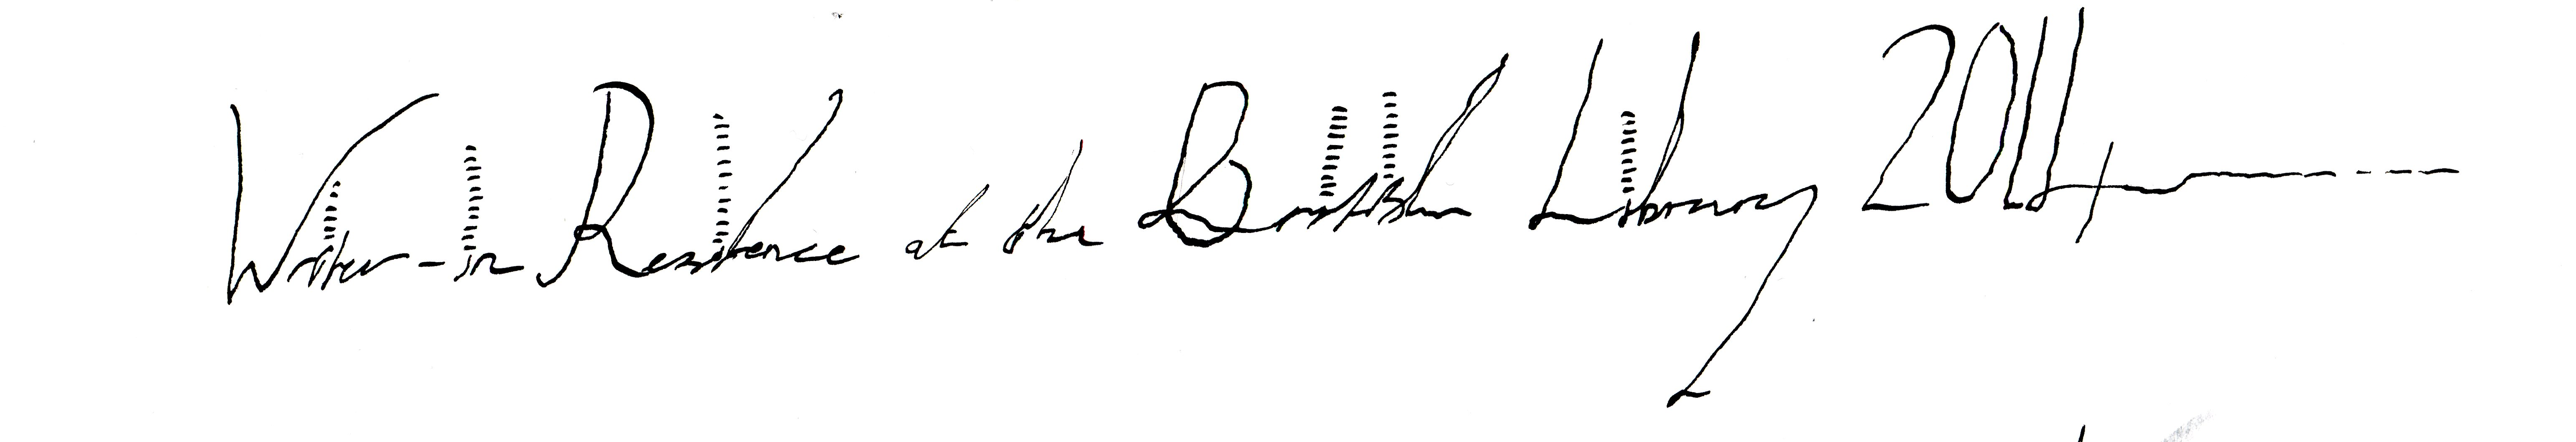 Writer-in Residence at the British Library 2014